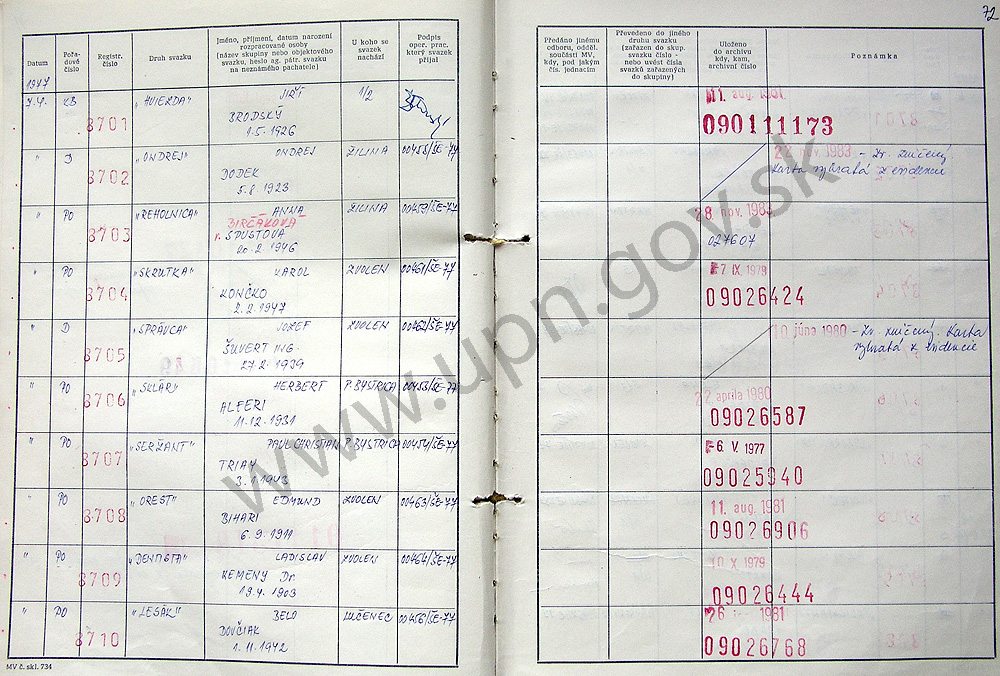 72
Datum
Pořadové číslo
Registr. číslo
Druh svazku
Jméno, příjmení, datum narození
rozpracované osoby
(název skupiny nebo objektového
svazku, heslo ag. pátr. svazku
na neznámého pachatele)
U koho se
svazek
nachází
Podpis
oper. prac.
který svazek
přijal
Předáno jinému
odboru, odděl.
součásti MV,
kdy, pod jakým
čís. jednacím
Převedeno do jiného
druhu svazku
(zařazen do skup.
svazku číslo -
nebo uvést čísla
svazků zařazených
do skupiny)
Uloženo
do archivu
kdy, kam,
archivní číslo
Poznámka
1977
7.4. KS 8701 „HVIEZDA" JIŘÍ 1/2
BRODSKÝ
1.5.1926
11. aug. 1981
090111173
" D 8702 „ONDREJ" ONDREJ ŽILINA 00458/ŠE-77
DODEK
5.8.1923
1983 - Zv. zničený
Karta vybratá z evidencie
" PO 8703 „REHOLNICA" ANNA ŽILINA 00459/ŠE-77
BIRČÁKOVÁ
r. SPUSTOVÁ
20.2.1946
28 nov. 1983
027607
" PO 8704 „SKRUTKA" KAROL ZVOLEN 00461/ŠE-77
KONČKO
2.2.1947
7 IX. 1979
09026424
" D 8705 „SPRÁVCA" JOZEF ZVOLEN 00462/ŠE-77
ŠUVERT ING.
27.2.1939
10 júna 1980 - Zv. zničený. Karta
vybratá z evidencie
" PO 8706 „SKLÁR" HERBERT P. BYSTRICA 00453/ŠE-77
ALFERI
11.12.1931
22 apríla 1980
09026587
" PO 8707 „SERŽANT" PAUL CHRISTIAN P. BYSTRICA 00454/ŠE-77
TRIAN
3.1.1943
6. V. 1977
09025940
" PO 8708 „OREST" EDMUND ZVOLEN 00463/ŠE-77
BIHARI
6.9.1911
11. aug. 1981
09026906
" PO 8709 „DENTISTA" LADISLAV ZVOLEN 00464/ŠE-77
KEMENY Dr.
19.4.1903
10 X. 1979
09026444
" PO 8710 „LESÁK" BELO LUČENEC 00456/ŠE-77
DOVČIAK
1.11.1942
26 1981
09026768
MV č. skl. 734
www.upn.gov.sk